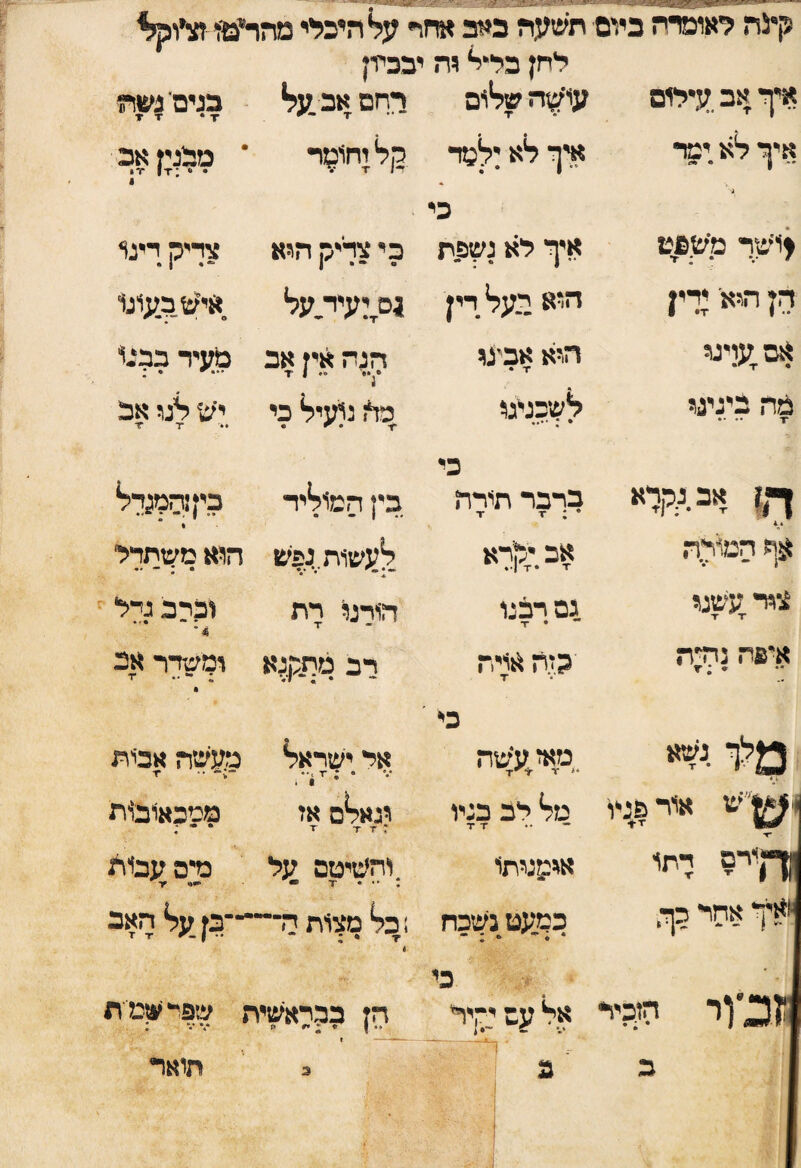 קינה לאומרה ביום תשעה באב אחר על היכלי מהר"מ
לחן בליל זה יבכיון
איך אב עילום עושה שלום רחם אב על בנים נשה
איך לא ימר איך לא ילמד קל וחומר מבנין אב
כי
יושר משפט איך לא נשפת כי צדיק הוא צדיק דינו
הן הוא ידין הוא בעל דין גם יעיד על איש בעונו
אם עוינו הוא אבינו הנה אין אב מעיד בבנו
מה בינינו לשכנינו מה נועיל כי יש לנו אב
כי
הן אב נקרא ברבר תורה בין המוליד בין המגדל
אף המורה אב יקרא לעשות נפש הוא משתדל
צור עשנו גם רבנו הורנו דת וכרב גדל
איפה נהיה כזה אויה רב מתקנא ומשדר אב
כי
מלך נשא מאז עשה אל ישראל מעשה אבות
ש"ש אור פניו מל לב בניו ונאלם אז ממכאובות
הורם דתו אומנותו והשיטם על מים עבות
איך אחר כך, כמעט נשכח כל מצות הבן על האב
כי
זכור הזכיר אל עם יקיר הן בבראשית שפר שמת
ב ב כ תואר